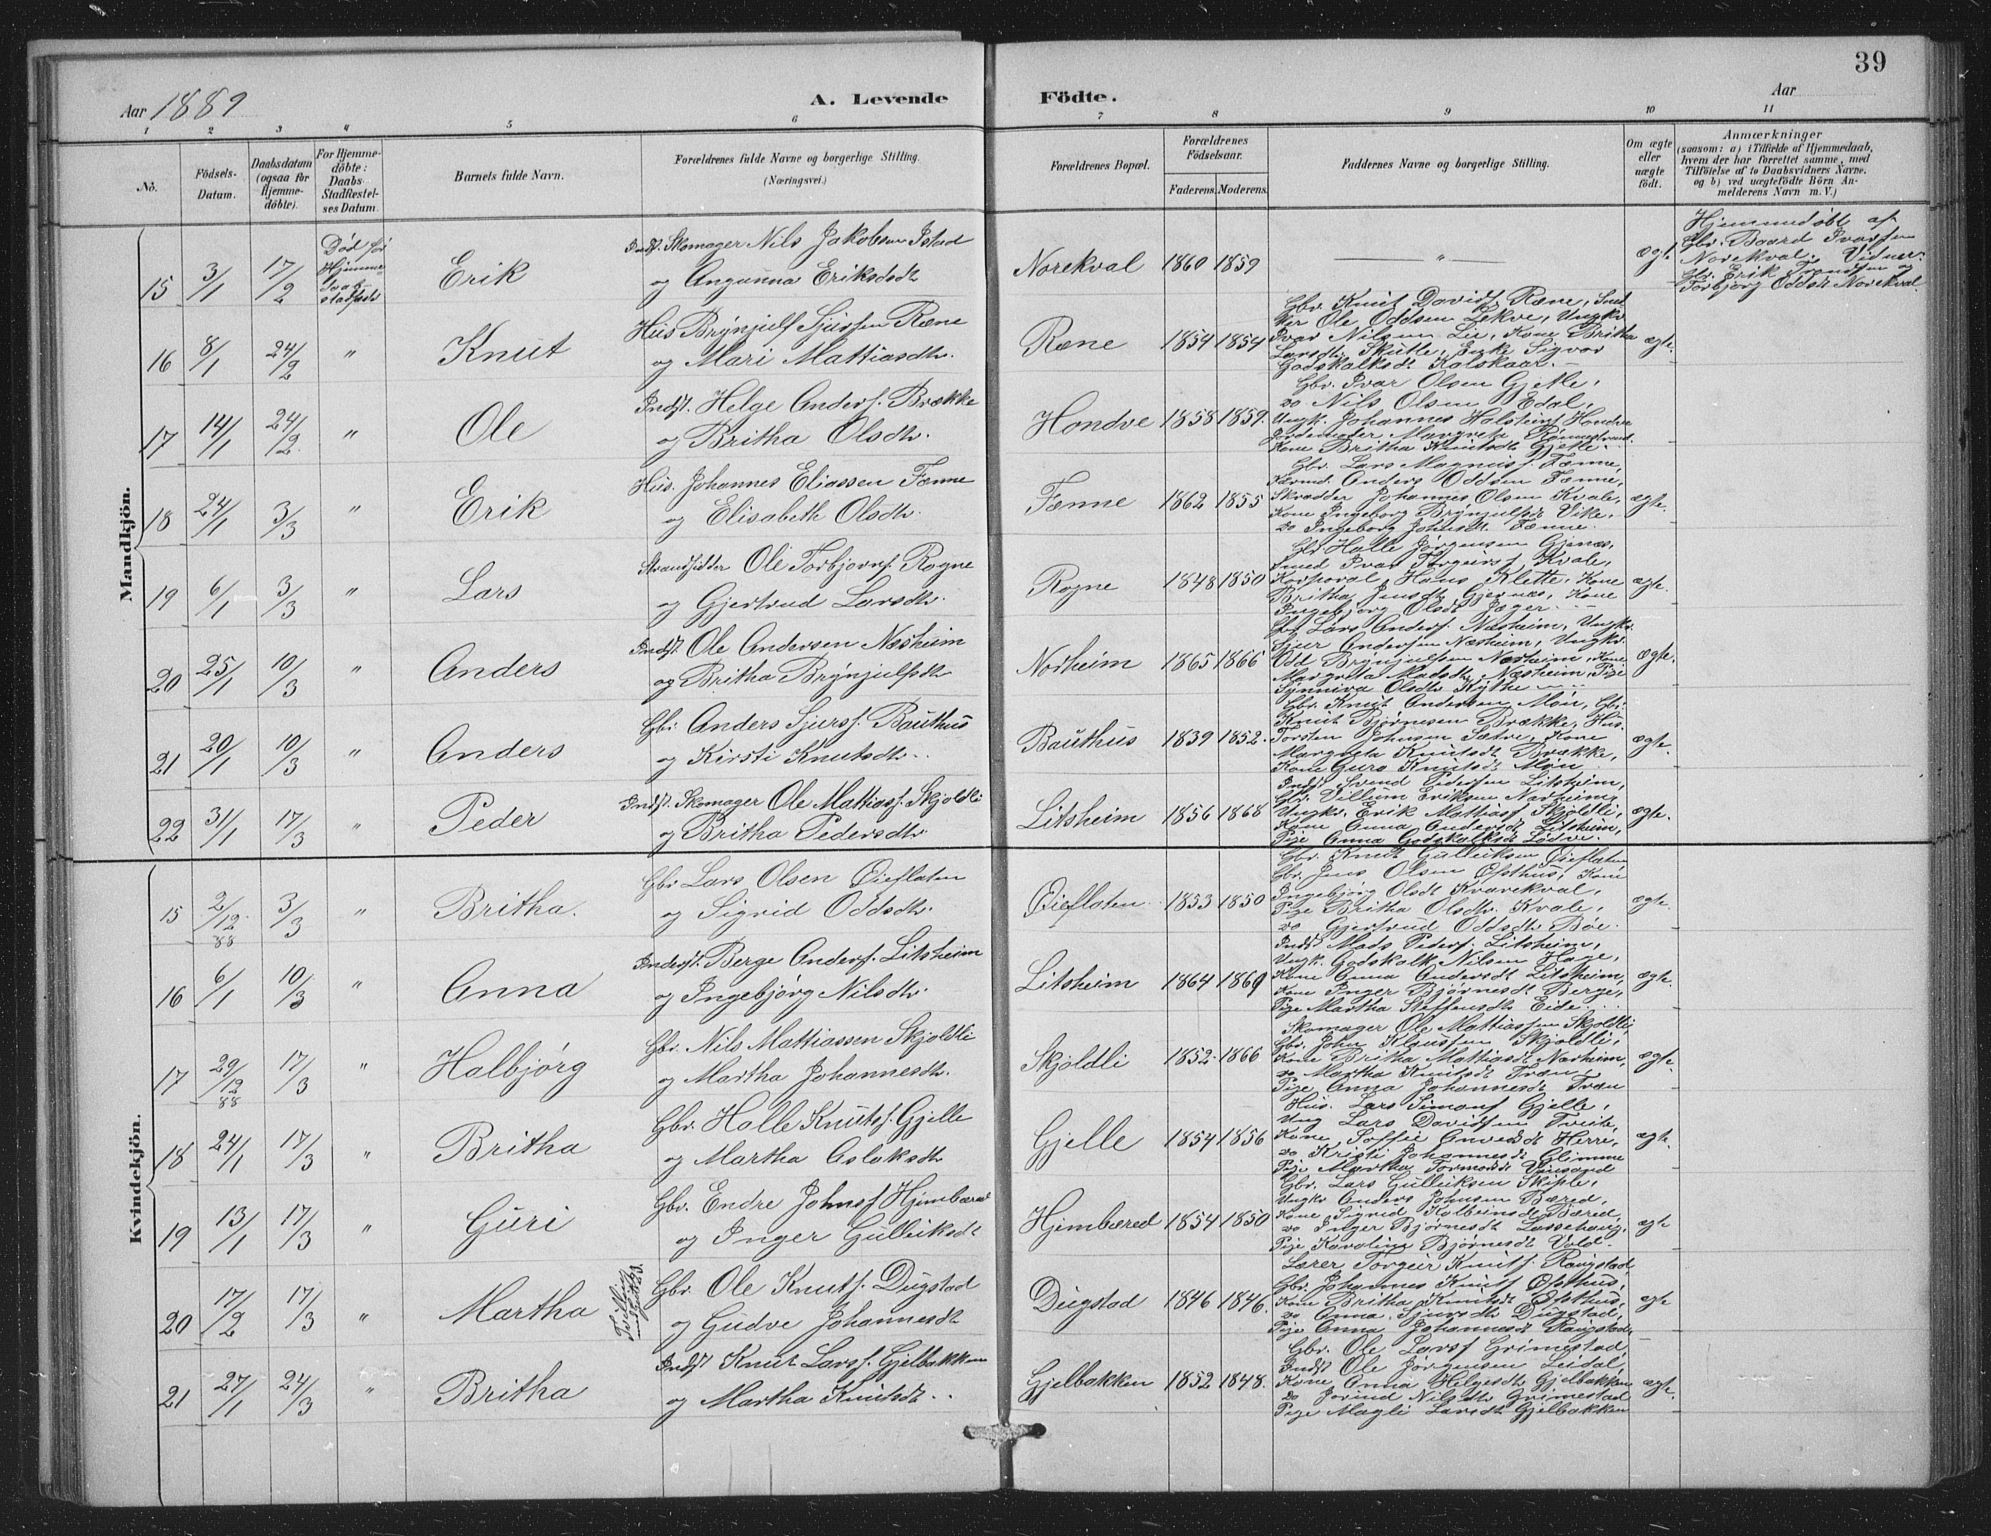 39
Aar 1889
A. Levende
Födte.
Aar
1 2 3 4 5 6 7 8 9 10 11
No.
Födsels-Datum.
Daabsdatum (ogsaa for Hjemmedöbte).
For Hjemmedöbte: Daabs Stadfæstelses Datum.
Barnets fulde Navn.
Forældrenes fulde Navne og borgerlige Stilling.
(Næringsvei.)
Forældrenes Bopæl.
Forældrenes Födselsaar.
Faderens. Moderens.
Faddernes Navne og borgerlige Stilling.
Om ægte eller uægte födt.
Anmærkninger
(saasom: a) i Tilfælde af Hjemmedaab,
hvem der har forrettet samme, med
Tilföielse af to Daabsvidners Navne.
og b) ved uægtefödte Börn An-
melderens Navn m. V.)
Mandkjön.
15 3/1 17/2 Död før Hjemmedaab stadfæst. Erik Indst. Skomager Nils Jakobsen Istad
og Angunna Eriksdodt Norekval 1860 1859 — " — ægt
Hjemmedöbt af
Gbr. Baard Ivarsen
Norekval. Vidner:
Gbr. Erik Trondsen og
Torbjorg Oddsdt. Norekval
16 8/1 24/2 " Knut Hus. Brynjulf Sjursen Rene
og Mari Mattiasdtr. Rene 1854 1854 ægte.
Gbr. Knut Davids. Rene, Snek
ker Ole Oddsen Lekve, Ungkr.
Ivar Nilsen Lie, Kone Britha
Larsdt. Skutle, Enke Sigvor
Godskalksdt. Kolskaar.
17 14/1 24/2 " Ole Indst. Helge Anders. Brække
og Britha Olsdtr. Hondve 1858 1859.
Gbr. Ivar Olsen Gjelle,
do Nils Olsen Edal,
Ungk. Johannes Holstein Hondve
Jordemoder Margreta
Kone Britha Knutsdt. Gjelle.
18 24/1 3/3 " Erik Hus. Johannes Eliassen Fenne
og Elisabeth Olsdtr. Fenne 1862 1855 ægte.
Gbr. Lars Magnus. Fenne,
Anders Oddsen Fenne,
Skrædder Johannes Olsen Kvale,
Kone Ingeborg Brynjulfsd. Vike,
do Ingeborg Johnsdt. Fenne.
19 6/1 3/3 " Lars Strandsidder Ole Torbjorns. Rogne
og Gjertrud Larsdtr. Rogne 1848 1850 ægte.
Gbr. Halle Jørgensen Gjenæs,
Smed Ivar Torgeirs. Kvale,
Korporal Hans Klette, Kone
Britha Jensdt. Gjernæs, Kone
Ingebjørg Olsdt. Jæger.
20 25/1 10/3 " Anders Indst. Ole Andersen Næsheim
og Britha Brynjulfsdtr. Norheim 1865 1866 ægte.
Gbr. Lars Anders. Næsheim, Ungkr.
Sjur Andersen Næsheim, Ungkr.
Odd Brynjulfsen Norheim, Kone
Margreta Madsdt. Næsheim, Pige
Synniva Olsdtr. Kythe
21 20/1 10/3 " Anders Gbr. Anders Sjurs. Bauthus
og Kirsti Knutsdtr. Bauthus 1839 1852. ægte.
Gbr. Knut Andersen Møn, Gbr.
Knut Bjørnesen Brække, Hus.
Torsten Johnsen Sætve, Kone
Margreta Knutsdt. Brække,
Kone Guro Knutsdt. Møn
22 31/1 17/3 " Peder Indst. Skomager Ole Mattias. Skjoldli
og Britha Pedersdtr. Litsheim 1856 1868 ægte.
Indst. Svend Pedersen Litsheim,
Gbr. Villum Eriksen Norheim,
Ungkr. Erik Mattias. Skjoldli,
Kone Anna Andersdt. Litsheim,
Pige Anna Godskalksdt. Lødve.
Kvindekjön.
15 2/12 88 3/3 " Britha. Gbr. Lars Olsen Øieflaten
og Sigrid Oddsdtr. Øieflaten 1853 1850 ægte.
Gbr. Knut Gulleiksen Øieflaten
Gbr. Jens Olsen Opthus, Kone
Ingebjørg Olsdt. Kvarekval,
Pige Britha Olsdtr. Kvale,
do Gjertrud Oddsdt. Bøe.
16 6/1 10/3 " Anna Inderst. Berge Anders. Litsheim
og Ingebjørg Nilsdtr. Litsheim 1864 1869 ægte.
Indst. Mads Peders. Litsheim,
Ungk. Godskalk Nilsen Hage,
Kone Anna Andersdt. Litsheim,
Kone Inger Bjørnesdt. Berge,
Pige Martha Steffensdt. Eide.
17 29/12 88 17/3 " Halbjørg Gbr. Nils Mattiassen Skjoldli
og Martha Johannesdtr. Skjoldli 1852. 1866 ægte.
Skomager Ole Mattiassen Skjoldli,
Gbr. John Klaussen Skjoldli,
Kone Britha Mattiasdt. Norheim,
do Martha Knutsdt. Træn,
Pige Anna Johannesdt. Træn
18 24/1 17/3 " Britha Gbr. Halle Knuts. Gjelle
og Martha Aslaksdtr. Gjelle 1854 1856 ægte.
Hus. Lars Simons. Gjelle,
Ung Lars Davidsen Tveite,
Kone Soffie Herre,
do Kristi Johannesdt. Glimme
Pige Martha Tormodsdt.
19 13/1 17/3 " Guri Gbr. Endre Johns. Hjembæred
og Inger Gulleiksdt. Hjembæred 1854 1850 ægt
Gbr. Lars Gulleiksen Skiple,
Ungkr. Anders Johnsen Bæred,
Kone Sigrid Kolbeinsdt. Bæred,
do Inger Bjørnesdt. Lassehaug,
Pige Karoline Bjørnesdt. Vold.
20 17/2 17/3 " Martha Gbr. Ole Knuts. Dugstad
og Gudve Johannesdt. Dugstad 1846 1846. ægt
Lærer Torgeir Knuts. Rangstad
Gbr. Johannes Knuts. Opthus,
Kone Britha Knutsdt. Opthus,
do Anna Sjursdt. Dugstad,
Pige Anna Johannesdt. Raugstad.
21 27/1 24/3 " Britha Indst. Knut Lars. Gjelbakken
og Martha Knutsdt. Gjelbakken 1852 1848. ægte.
Gbr. Ole Lars. Grimestad,
Indst. Ole Jørgensen Seidal,
Kone Anna Helgesdt. Gjelbakken
do Jorund Nilsdtr. Grimestad
Pige Magli Larsdt. Gjelbakken